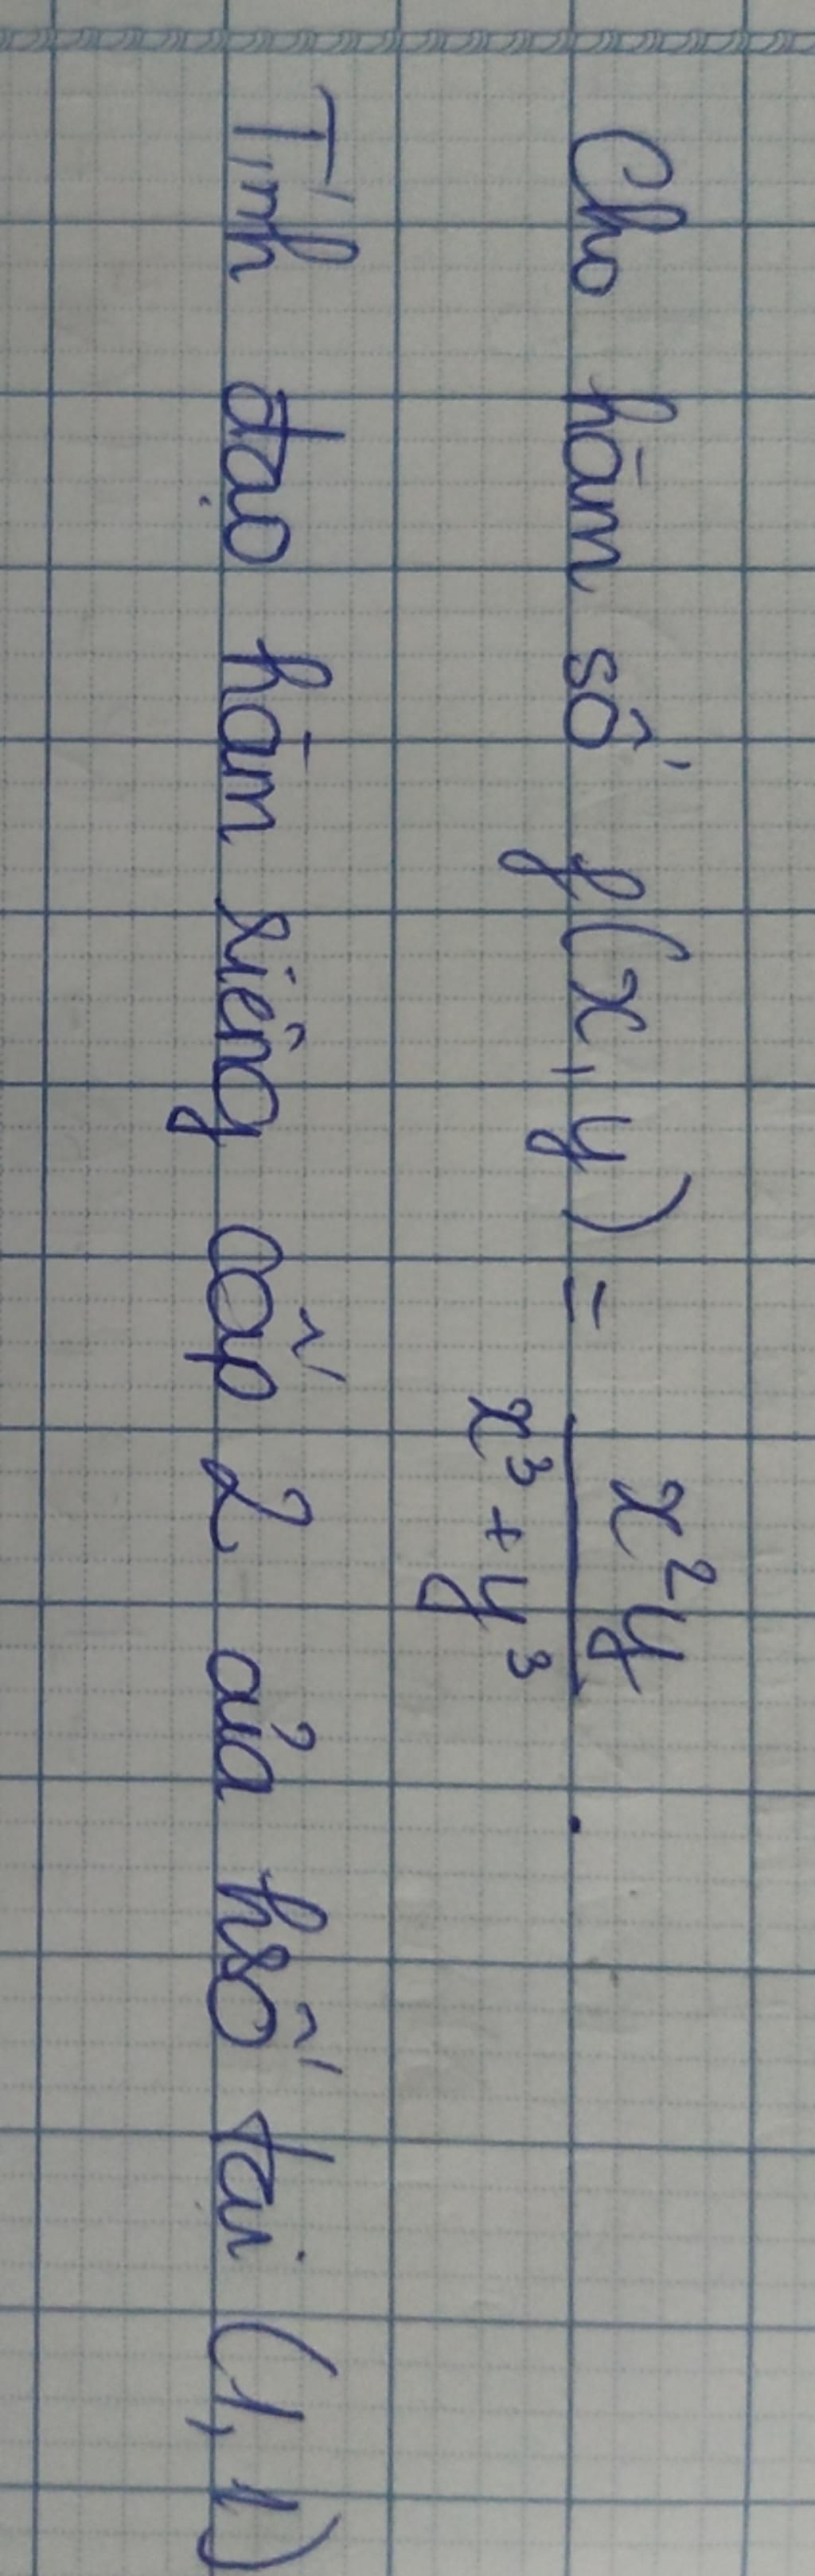 Cho hàm số f(x, y) = x²y / x³ + y³ .
Tính đạo hàm riêng cấp 2 của hsố tại (1, 1)